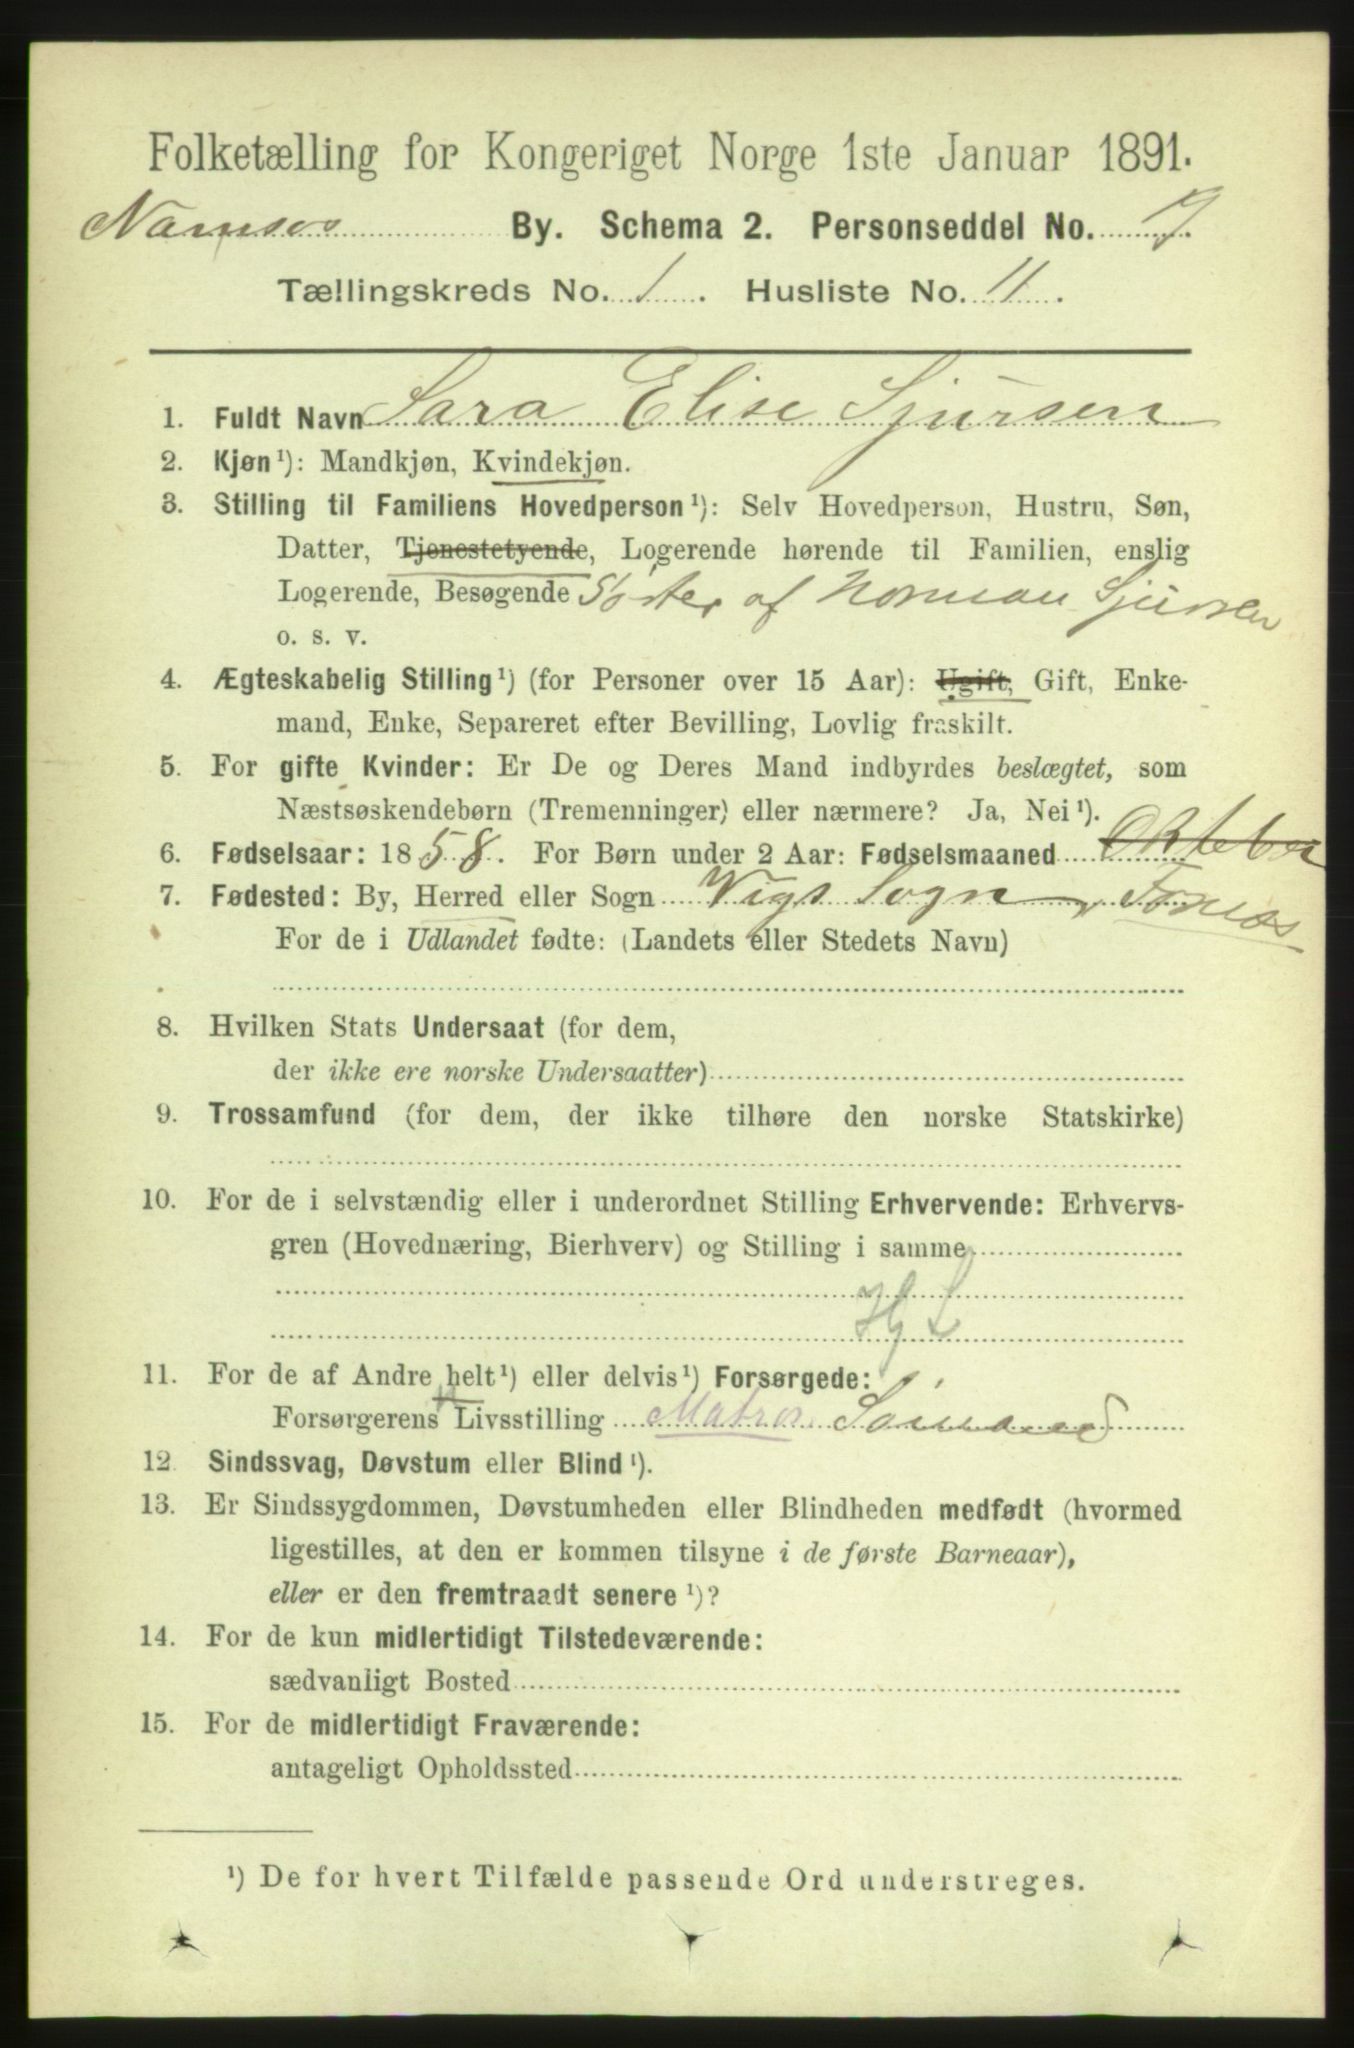 Folketælling for Kongeriget Norge 1ste Januar 1891.
Namsos By. Schema 2. Personseddel No. 9.
Tællingskreds No. 1. Husliste No. 11.
1. Fuldt Navn Sara Elise Sjursen
2. Kjøn¹): Mandkjøn, Kvindekjøn.
3. Stilling til Familiens Hovedperson¹): Selv Hovedperson, Hustru, Søn,
Datter, Tjenestetyende, Logerende hørende til Familien, enslig
Logerende, Besøgende Søster af Norman Sjursen
o. s. v.
4. Ægteskabelig Stilling¹) (for Personer over 15 Aar): Ugift, Gift, Enke-
mand, Enke, Separeret efter Bevilling, Lovlig fraskilt.
5. For gifte Kvinder: Er De og Deres Mand indbyrdes beslægtet, som
Næstsøskendebørn (Tremenninger) eller nærmere? Ja, Nei¹).
6. Fødselsaar: 1858. For Børn under 2 Aar: Fødselsmaaned Oktober
7. Fødested: By, Herred eller Sogn Vigs Sogn, Fosnæs
For de i Udlandet fødte: (Landets eller Stedets Navn)
8. Hvilken Stats Undersaat (for dem,
der ikke ere norske Undersaatter)
9. Trossamfund (for dem, der ikke tilhøre den norske Statskirke)
10. For de i selvstændig eller i underordnet Stilling Erhvervende: Erhvervs-
gren (Hovednæring, Bierhverv) og Stilling i samme
Hg L
11. For de af Andre helt¹) eller delvis¹) Forsørgede:
Forsørgerens Livsstilling Matros. Sømand
12. Sindssvag, Døvstum eller Blind¹).
13. Er Sindssygdommen, Døvstumheden eller Blindheden medfødt (hvormed
ligestilles, at den er kommen tilsyne i de første Barneaar),
eller er den fremtraadt senere¹)?
14. For de kun midlertidigt Tilstedeværende:
sædvanligt Bosted
15. For de midlertidigt Fraværende:
antageligt Opholdssted
¹) De for hvert Tilfælde passende Ord understreges.